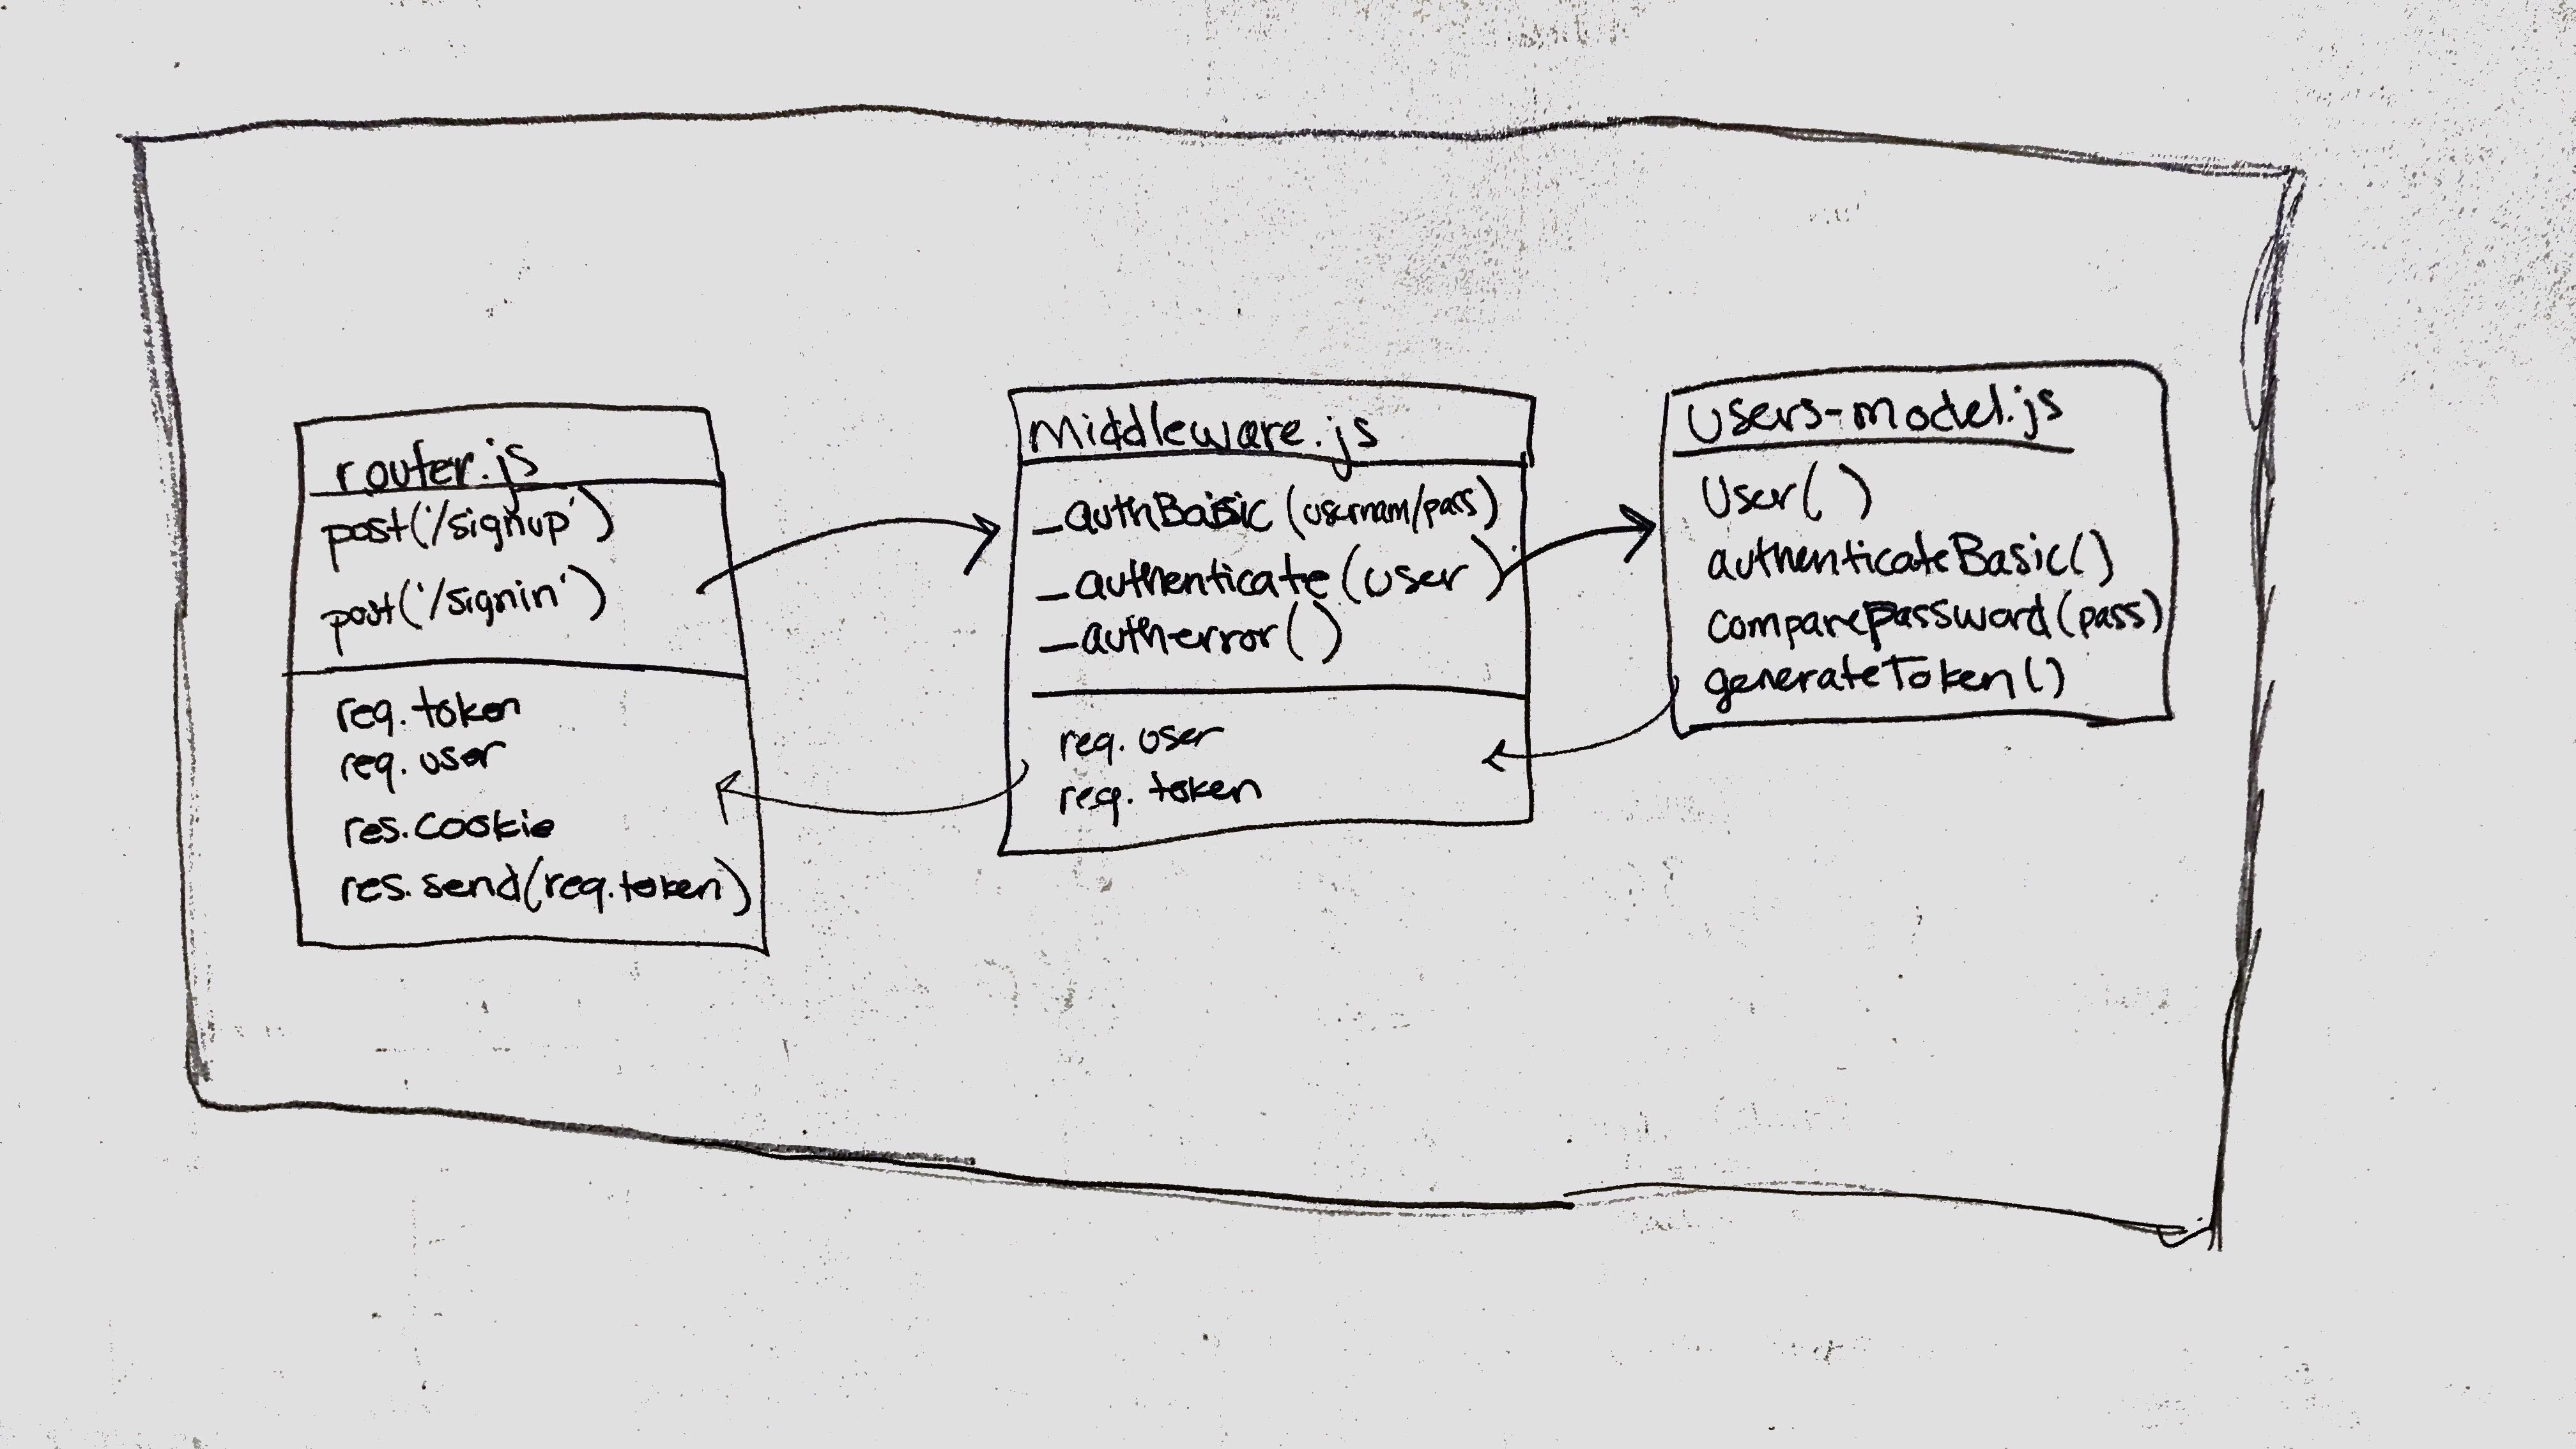 router.js
post('/signup')
post('/signin')
req.token
req.user
res.cookie
res.send(req.token)
middleware.js
_authBasic(usernam/pass)
_authenticate(user)
_autherror()
req.user
req.token
users-model.js
User()
authenticateBasic()
comparePassword(pass)
generateToken()